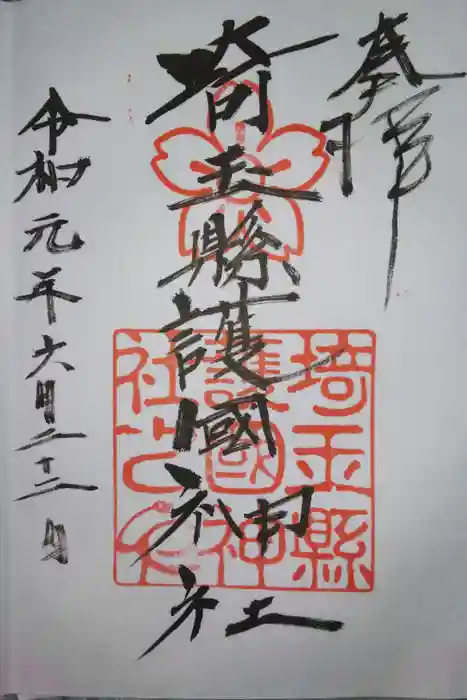 奉拝
埼玉縣護國神社
令和元年六月二十二日
埼玉縣
護國神
社之印